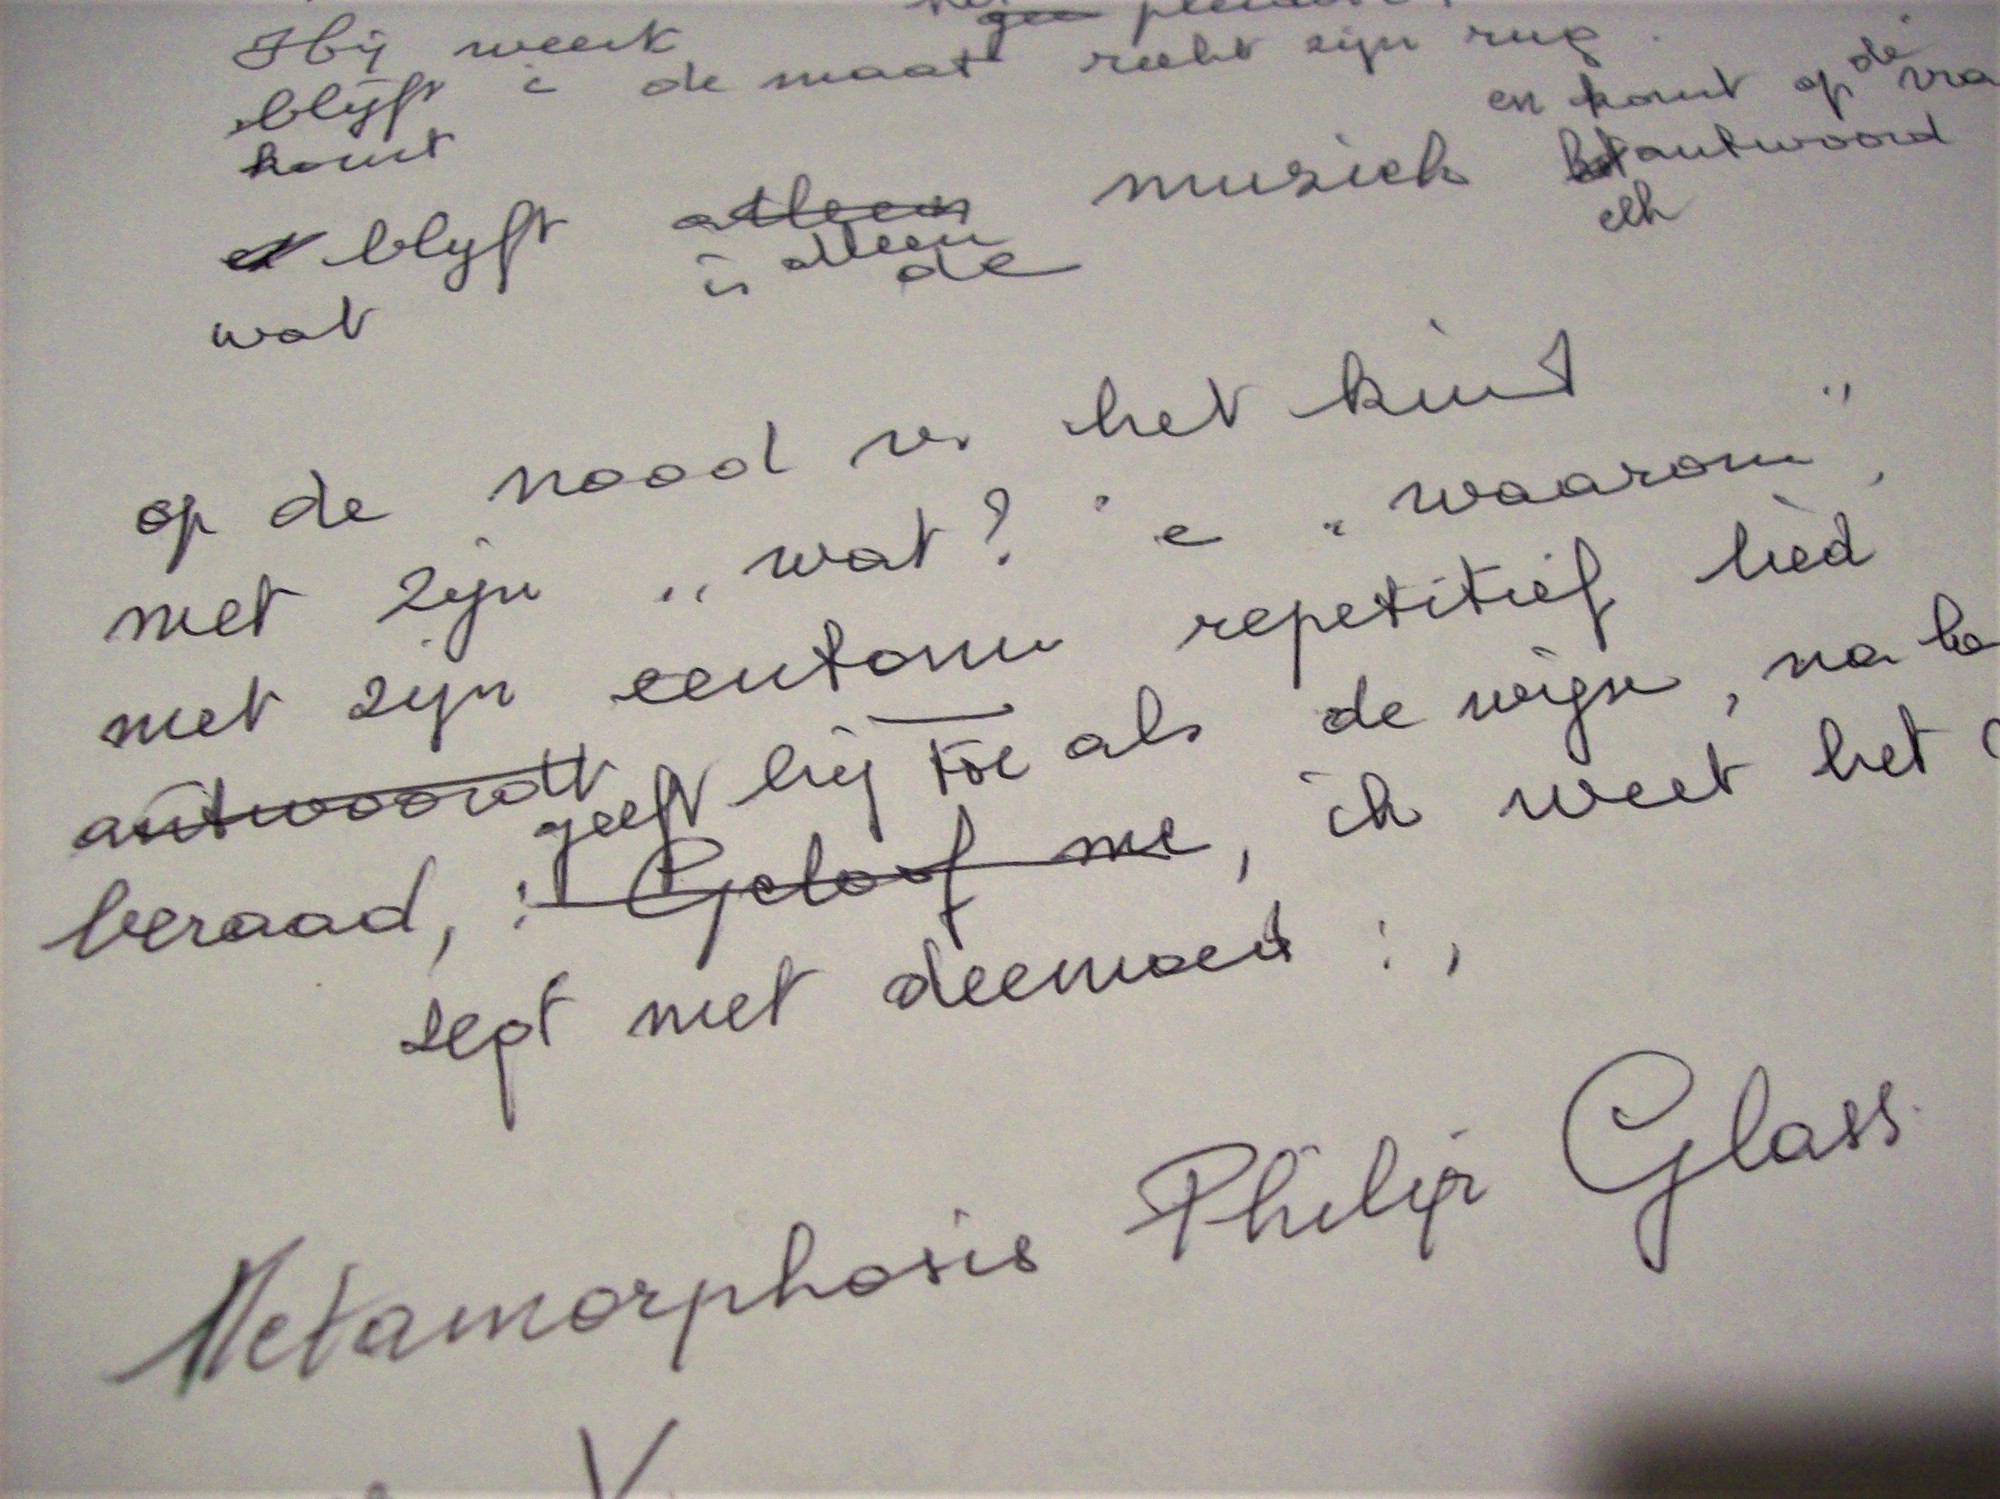 Hij weent
blijft i de maat recht zijn rug
en komt op de
komt
blijft alleen muziek het antwoord
is alleen de elk
wat
op de nood v. het kind
met zijn „wat?" e "waarom",
met zijn eentonu repetitief lied
antwoordt geeft hij toe als de wijze, na
beraad, : Geloof me, ik weet het
zegt met deemoed : ,
Metamorphosis Philip Glass
V.